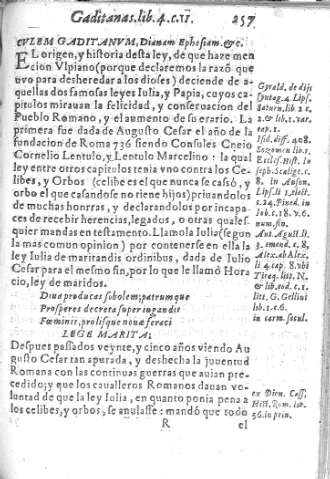 Gaditanas.lib.4.c.II. 257
CVLEM GADITANVM, Dianam Ephesiam.&c.
EL origen, y historia desta ley, de que haze men
cion Vlpiano (porque declaremos la razõ que
tuvo para desheredar a los dioses) deciende de a-
quellas dos famosas leyes Iulia, y Papia, cuyos ca
pitulos mirauan la felicidad, y conseruacion del
Pueblo Romano, y el aumento de su erario. La
primera fue dada de Augusto Cesar el año de la
fundacion de Roma 736 siendo Consules Cneio
Cornelio Lentulo, y Lentulo Marcelino : la qual
ley entre otros capitulos tenia vno contra los Ce-
libes, y Orbos (celibe es el que nunca se casó, y
orbo el que casandose no tiene hijos) priuandolos
de muchas honrras, y declarandolos por incapa-
ces de recebir herencias, legados, o otras quales
quier mandas en testamento. Llamola Iulia (segun
la mas comun opinion) por contenerse en ella la
ley Iulia de maritandis ordinibus, dada de Iulio
Cesar para el mesmo fin, por lo que le llamó Hora
cio, ley de maridos.
Diua producas sobolem; patrumque
Prosperes decreta super iugandis
Fœminis, prolisque nouæ feraci
LEGE MARITA;
Despues passados veynte, y cinco años viendo Au
gusto Cesar tan apurada, y deshecha la juuentud
Romana con las continuas guerras que auian pre-
cedido; y que los caualleros Romanos dauan vo-
luntad de que la ley Iulia, en quanto ponia pena a
los celibes, y orbos, se anulasse : mandó que todo
R el
Gyrald. de dijs
syntag. 4. Lips.
Saturn. lib. 2 c.
2. & lib. 1. var.
cap. 1.
Isid. diff. 408.
Sozomen lib. 1.
Eccles. Hist. Io
seph. Scalige. c.
8. in Auson.
Lips. li. 1. elect.
c. 24. Pined. in
Iob. c. 18. v. 6.
num. fin.
Ant. August. li.
3. emend. c. 8.
Alex. ab Alex.
li 4 cap. 8. vbi
Tiraq. litt. N.
& lib. eod. c. 1.
litt. G. Gellius
lib. 2. c. 6.
in carm. secul.
ex Dion. Cass.
Hist. Rom. lib.
56. in prin.